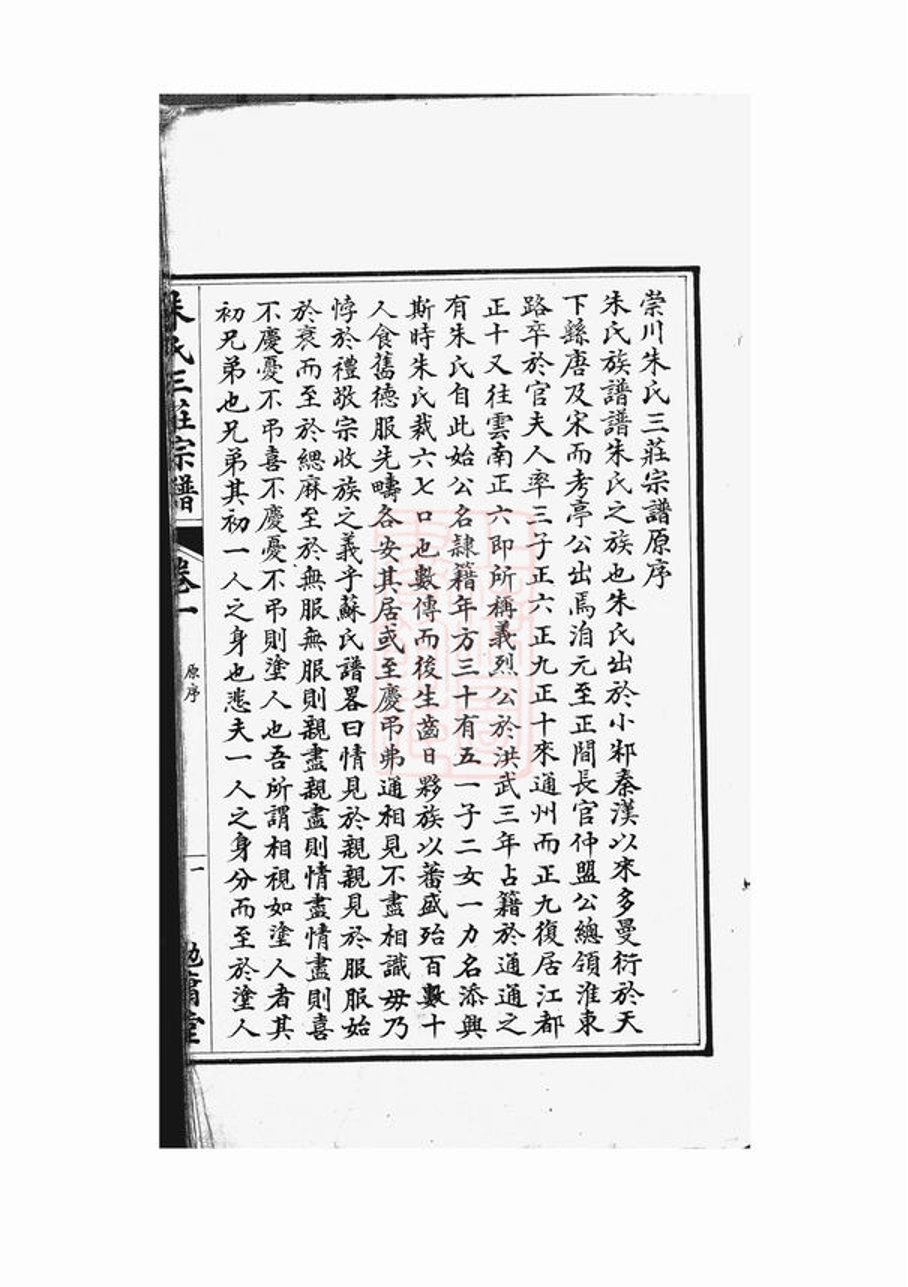 崇川朱氏三莊宗譜原序
朱氏族譜譜朱氏之族也朱氏出於小邾秦漢以來多曼衍於天
下繇唐及宋而考亭公出焉洎元至正間長官仲盟公總領淮東
路卒於官夫人率三子正六正九正十來通州而正九復居江都
正十又往雲南正六即所稱義烈公於洪武三年占籍於通通之
有朱氏自此始公名隸籍年方三十有五一子二女一力名添興
斯時朱氏裁六七口也數傳而後生齒日夥族以蕃盛殆百數十
人食舊德服先疇各安其居或至慶弔弗通相見不盡相識毋乃
悖於禮敬宗收族之義乎蘇氏譜畧曰情見於親親見於服服始
於衰而至於緦麻至於無服無服則親盡親盡則情盡情盡則喜
不慶憂不弔喜不慶憂不弔則塗人也吾所謂相視如塗人者其
初兄弟也兄弟其初一人之身也悲夫一人之身分而至於塗人
朱氏三莊宗譜
卷一
原序
一